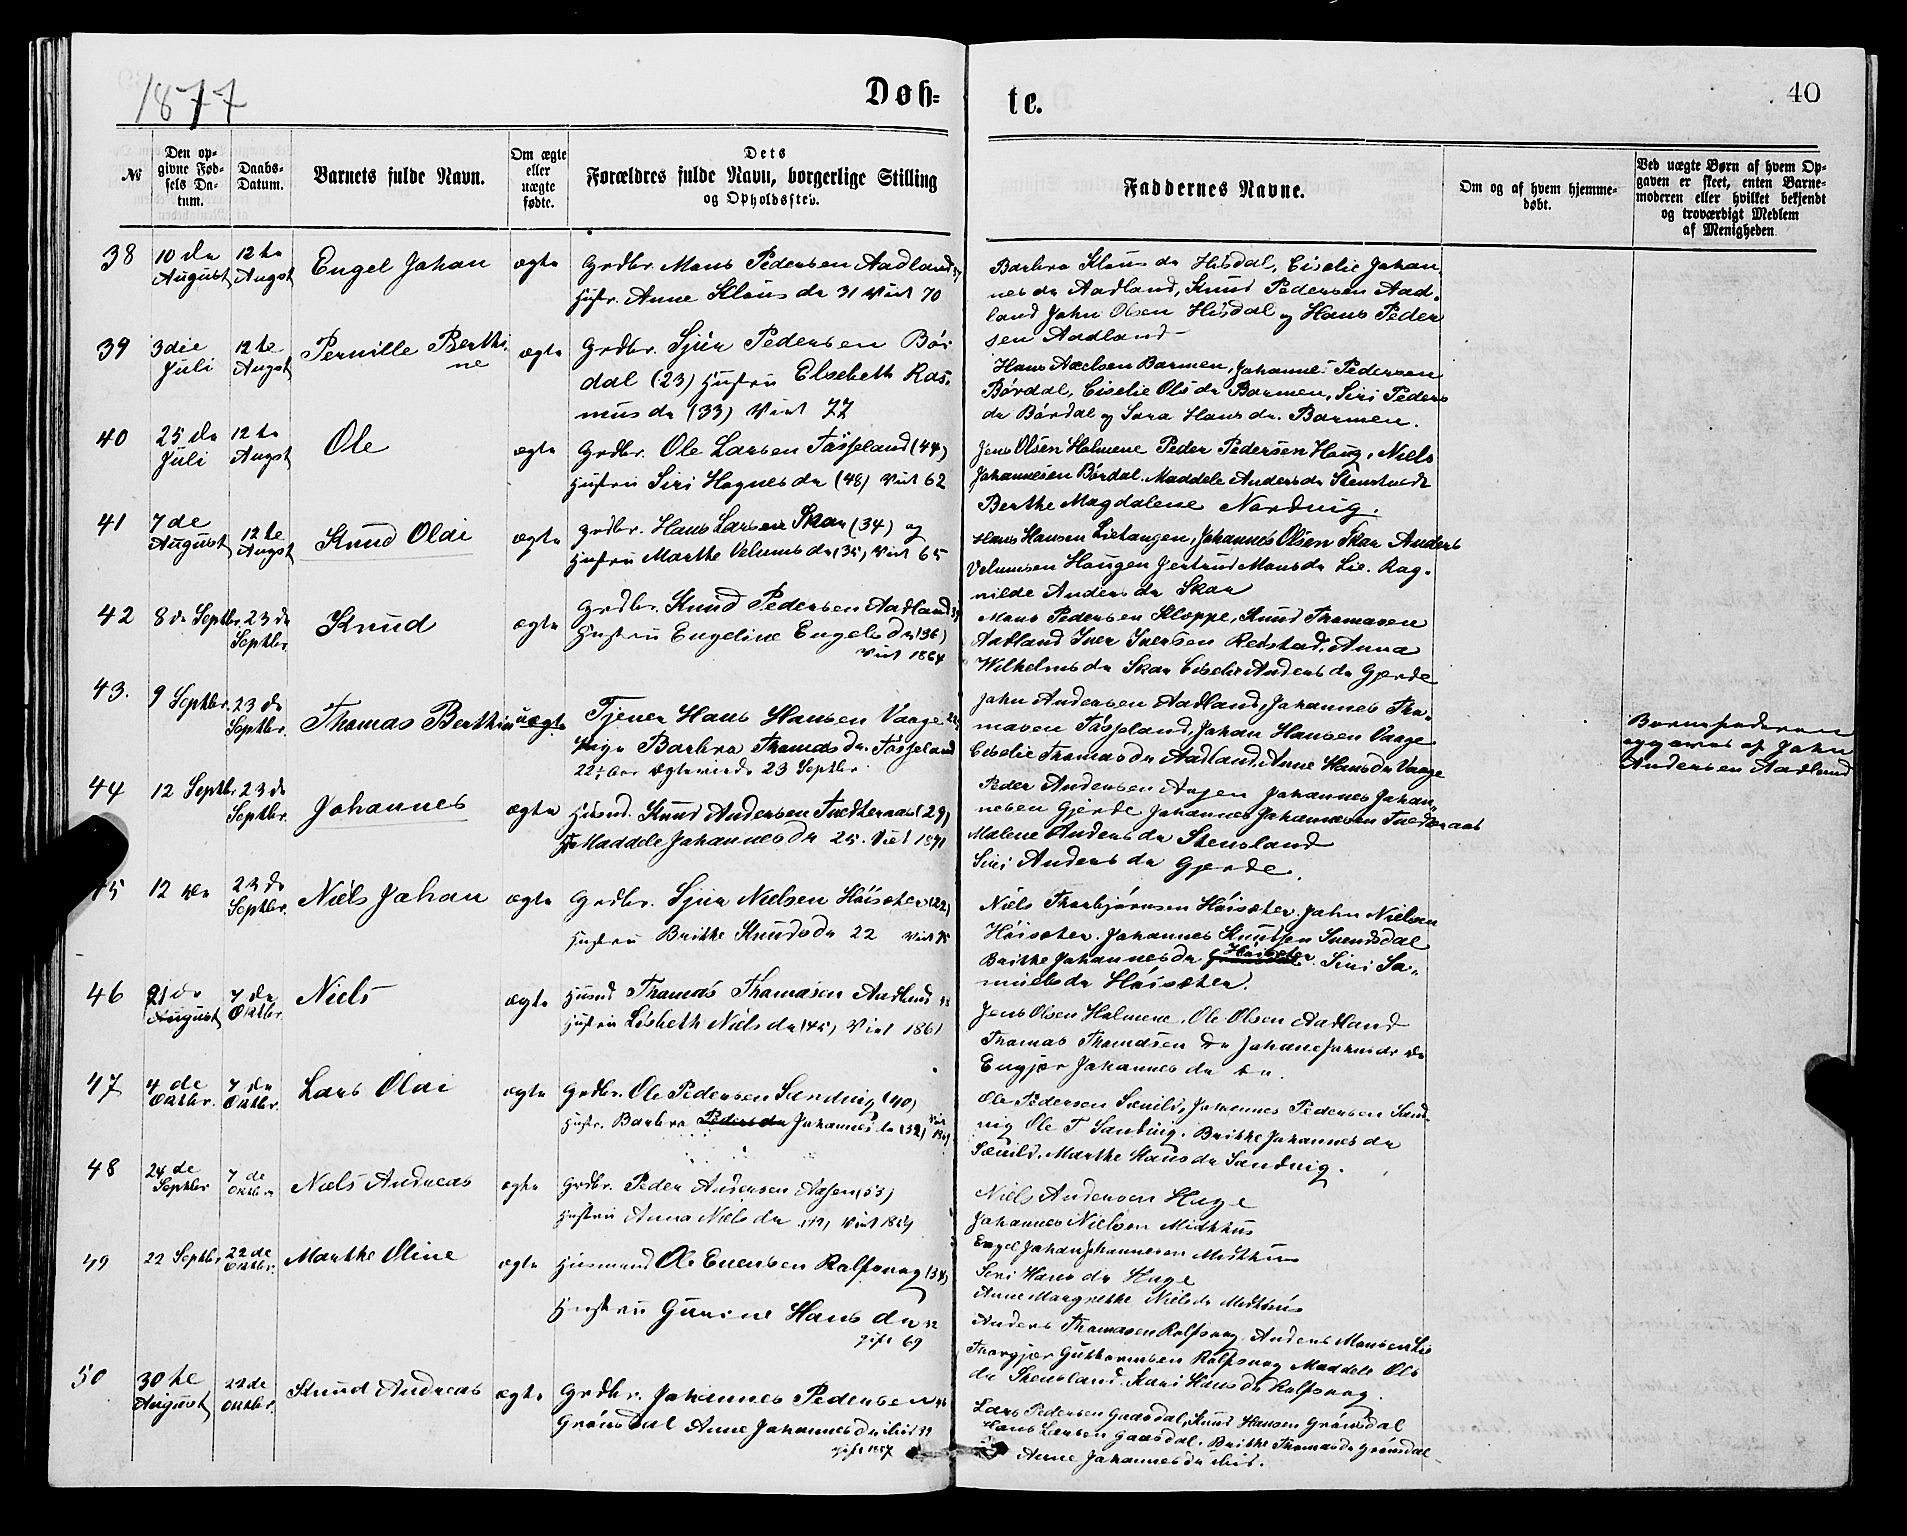 1877
Døb=
te.
40
№
Den op-
givne Fød-
sels Da-
tum.
Daabs-
Datum.
Barnets fulde Navn.
Om ægte
eller
uægte
fødte.
Dets
Forældres fulde Navn, borgerlige Stilling
og Opholdssted.
Faddernes Navne.
Om og af hvem hjemme-
døbt.
Ved uægte Børn af hvem Op-
gaven er skeet, enten Barne-
moderen eller hvilket bekjendt
og troværdigt Medlem
af Menigheden
38
10 de
August
12 te
Augst
Engel Johan
ægte
Grdbr. Mons Pedersen Aadland
Hustr. Anne Klaus dr 31 Viet 70
Barbra Klaus dr Hisdal, Ciselie Johan
nes dr Aadland, Knud Pedersen Aad-
land John Olsen Hisdal og Hans Peder
sen Aadland
39
3die
Juli
12 te
Augst
Pernille Berthi
ne
ægte
Grdbr. Sjur Pedersen Bør
dal (23) Hustru Elsebeth Ras-
mus dr (33) Viet 77
Hans Axelsen Barmen, Johannes Pedersen
Børdal, Ciselie Ols dr Barmen, Siri Peders
dr Børdal og Sara Hans dr. Barmen.
40
25 de
Juli
12 te
Augst
Ole
ægte
Grdbr. Ole Larsen Tøsseland (44)
Hustru Siri Hagnes dr (48) Viet 62
Jens Olsen Holmene Peder Pedersen Haug, Niels
Johannesen Børdal. Maddele Anders dr
Berthe Magdalene Nordvig.
41
7 de
August
12 te
Augst
Knud Oldi
ægte
Grdbr. Hans Larsen Skar (34) og
Hustru Marthe Velums dr (35) Viet 65
Hans Hansen Lietangen, Johannes Olsen Skar Anders
Velumsen Haugen Gertrud Mons dr Lie. Rag-
nilde Anders dr Skar
42
8 de Septbr.
23 de
Septbr
Knud
ægte
Grdbr. Knud Pedersen Aadland
Hustru Engeline Engels dr (36)
Viet 1864
Mons Pedersen Kloppe, Knud Thomasen
Aadland Iver Iversen Redstad, Anna
Wilhelms dr Skar Ciselie Anders dr Gjerde
43.
9 Septbr.
23 de
Septbr.
Thomas Berthin
uægte
Tjener Hans Hansen Vaage
Pige Barbra Thomas dr. Tøsseland
23 Septbr
John Andersen Aadland, Johannes Tho-
masen Tøsseland, Johan Hansen Vaage
Ciselie Thomas dr Aadland, Anne Hans dr Vaage
Barnefaderen
opgaves af John
Andersen Aadland
44
12 Septbr
23 de
Septbr.
Johannes
ægte
Husmd. Knud Andersen Tvedteraas (29)
H Maddele Johannes dr 25. Viet 1871
Peder Andersen Aasen Johannes Johan-
nesen Gjerde Johannes Johannesen Tvedteraas
Malene Anders dr Stensland
Siri Anders dr Gjerde.
45
12 de
23 de
Septbr.
Niels Johan
ægte
Grdbr. Sjur Nielsen Høisæter (22)
Hustru Brithe Knuds dr 22 Viet 75
Niels Thorbjørnsen Høisæter. John Nielsen
Høisæter. Johannes Knutsen Svendsdal
Brithe Johannes dr Høisæter. Siri Sa-
muels dr Høisæter.
46
21 de
August
7 de
Oktbr.
Niels
ægte
Husmd Thomas Thomasen Aadland
Hustru Lisbeth Niels dr (45) Viet 1861
Jens Olsen Holmene. Ole Olsen Aadland
Thomas Thomasen do Johane Johns dr do
Engjær Johannes dr do.
47
4 de
Oktbr.
7 de
Oktbr.
Lars Olai
ægte
Grdbr. Ole Pedersen Sandvig (40)
Hustr. Barbra Peders dr Johannes dr (32)
Ole Pedersen Sævild, Johannes Pedersen Sand-
vig Ole T Sandvig. Brithe Johannes dr
Sævild. Marthe Hans dr Sandvig.
48
24 de
Septbr
7 de
Oktbr.
Niels Andreas
ægte
Grdbr. Peder Andersen Aasen (53)
Hustru Anna Niels dr Viet 1864
Niels Andersen Hage
Johannes Nielsen Midthus
Engel Johan Johannesen Midthus
Seri Hans dr Hage
Anne Margrethe Niels dr Midthus
49
22 Septbr
22 de
Oktbr.
Marthe Oline
ægte
Husmand Ole Evensen Rolfsvaag (34)
Hustru Gurine Hans dr 32
gift 69
Anders Thomasen Rolfsvag. Anders Monsen Lie
Thorgjær Guttormsen Rolfsvag Maddele Ols
dr Stensland. Kari Hans dr Rolfsvag.
50
30 te
August
22 de
Oktbr.
Knud Andreas
ægte
Grdbr. Johannes Pedersen
Grønsdal Anne Johannes dr ibid
gift 1857
Lars Pedersen Gaasdal, Knud Hansen Grønsdal
Hans Larsen Gaasdal. Brithe Thomas dr Grønsdal
Anne Johannes dr ibid.